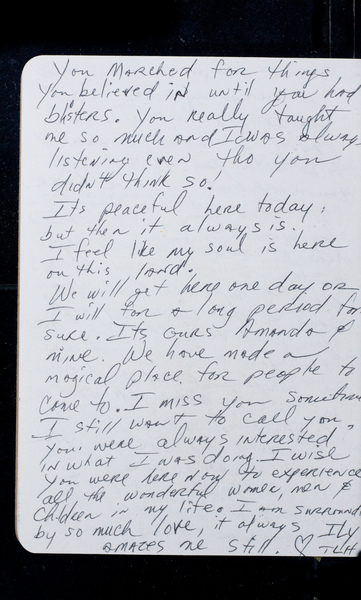 You Marched for things
you believed in until you had
blisters. You really taught
me so much and I was alway
listening even tho you
didn't think so!
Its peaceful here today,
but then it always is.
I feel like my soul is here
on this land.
We will get here one day or
I will for a long period for
sure. Its Ours Amanda &
mine. We have made a
magical place for people to
come to. I miss you sometim
I still want to call you,
you were always interested
in what I was doing. I wish
you were here now to experience
all the wonderful women, men &
children in my life. I am surround
by so much love, it always
amazes me still. ♡ ILY
TLH